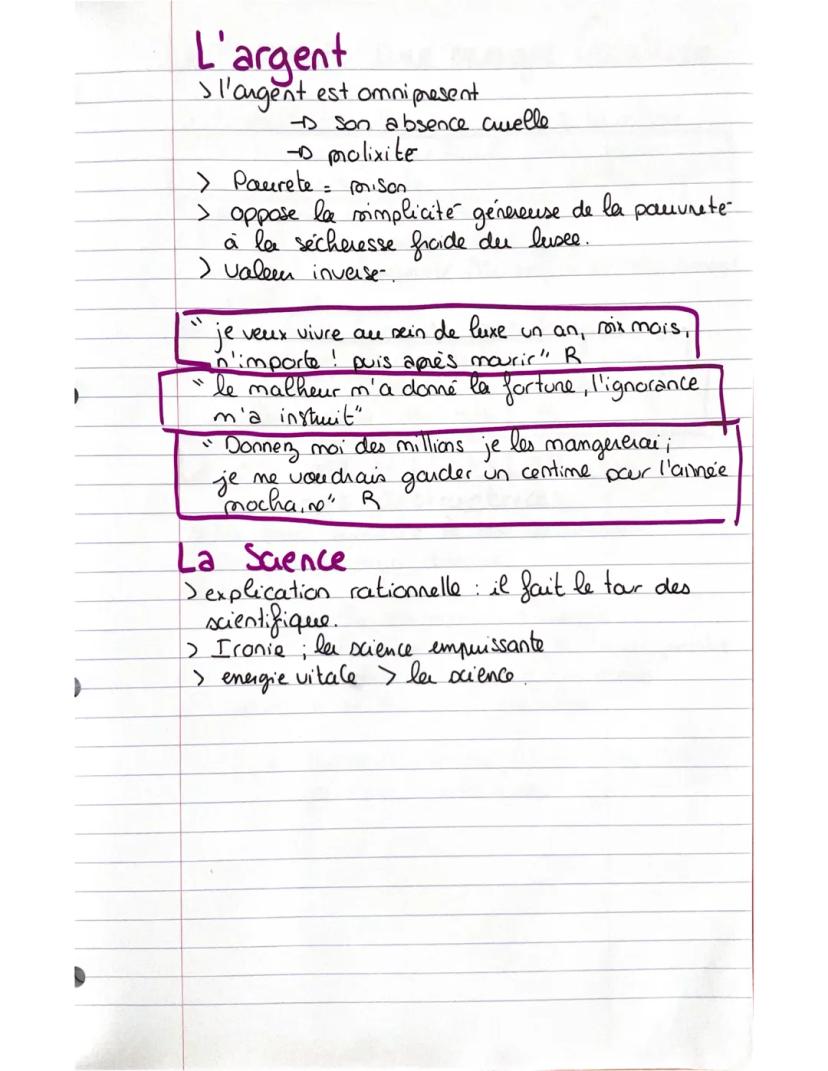 L'argent
> l'argent est omnipresent
→ son absence cruelle
→ prolixite
> Pauvrete = prison
> oppose la simplicité génereuse de la pauvrete
à la sécheresse froide du luxe.
> valeur inverse.
" je veux vivre au sein de luxe un an, six mois,
n'importe ! puis après mourir" R
" le malheur m'a donné la fortune, l'ignorance
m'a instruit"
" Donnez moi des millions je les mangererai ;
je ne voudrais garder un centime pour l'année
prochaine" R
La Science
> explication rationnelle : il fait le tour des
scientifique.
> Ironie ; la science empuissante
> energie vitale > la science.